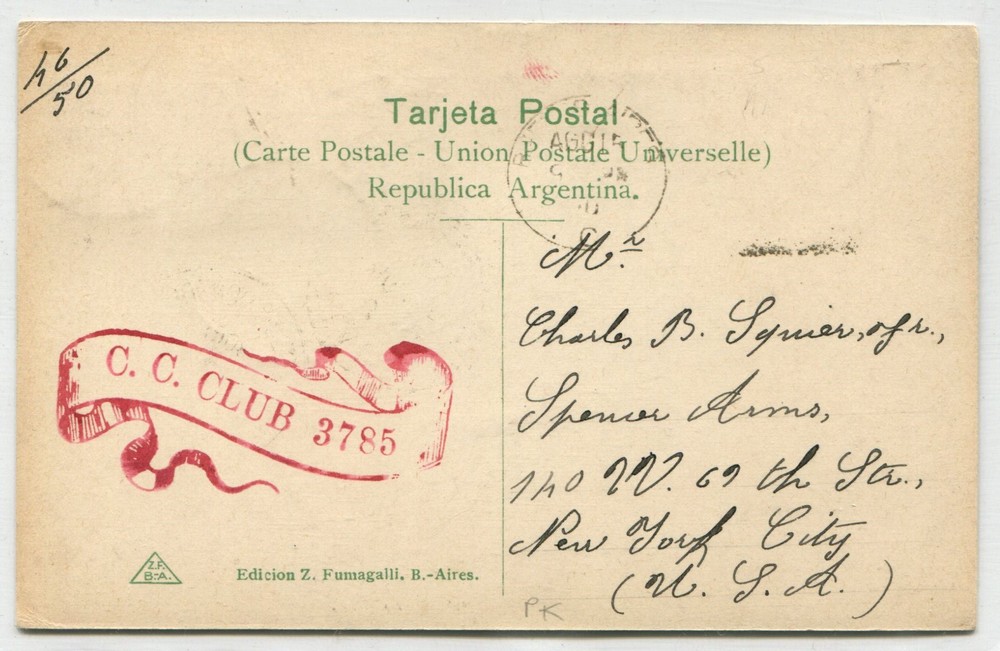 46/50
Tarjeta Postal
(Carte Postale - Union Postale Universelle)
Republica Argentina.
AGO 15
Mr.
Charles B. Squier, Jr.,
Spencer Arms,
140 W. 69 th Str.,
New York City
(U. S. A.)
C. C. CLUB 3785
Z.F.
B-A.
Edicion Z. Fumagalli. B.-Aires.
PK